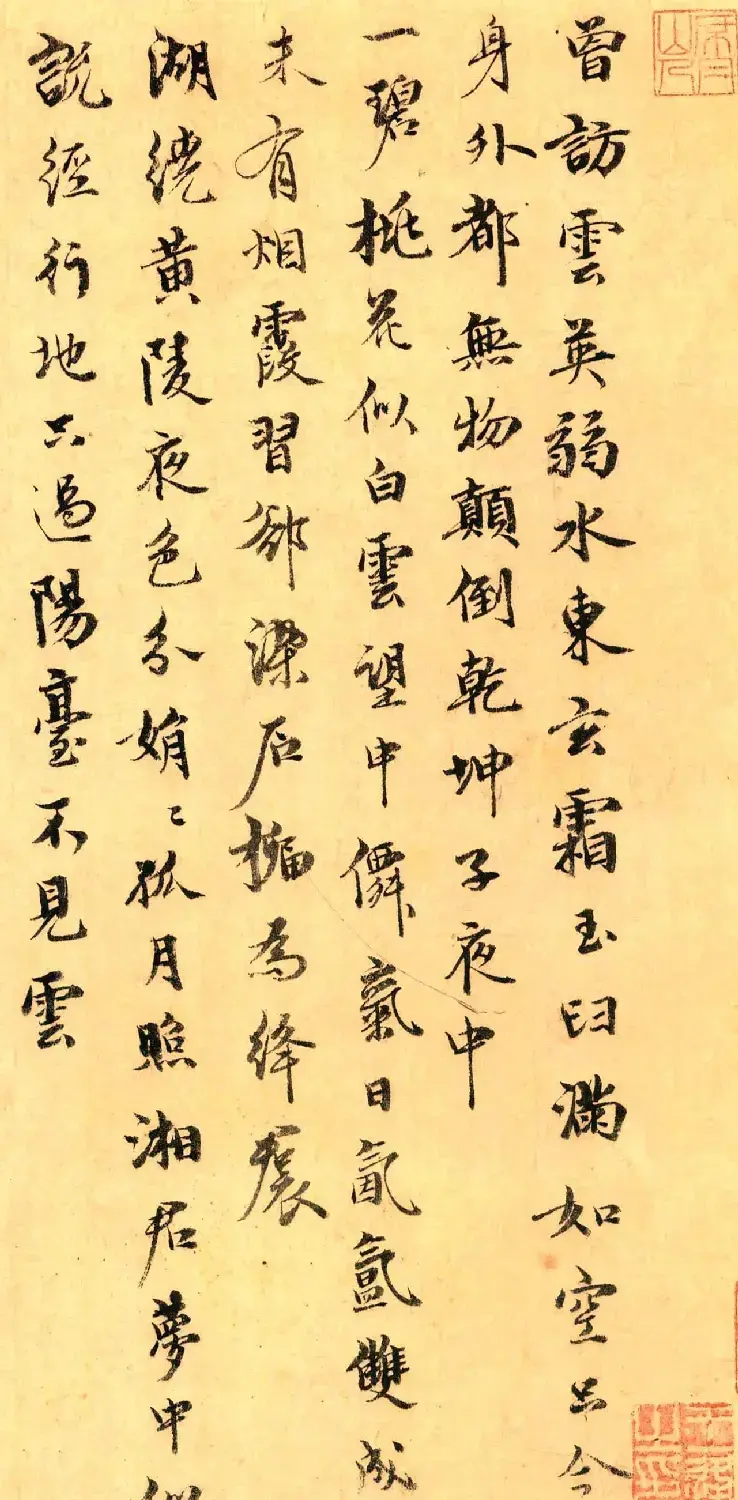 曾訪雲英弱水東玄霜玉臼滿如空只今
身外都無物顛倒乾坤子夜中
一碧桃花似白雲望中僊氣日氤氳雙成
未有烟霞習卻染石榴為絳裠
湖繞黃陵夜色分娟〻孤月照湘君夢中
説經行地只過陽臺不見雲